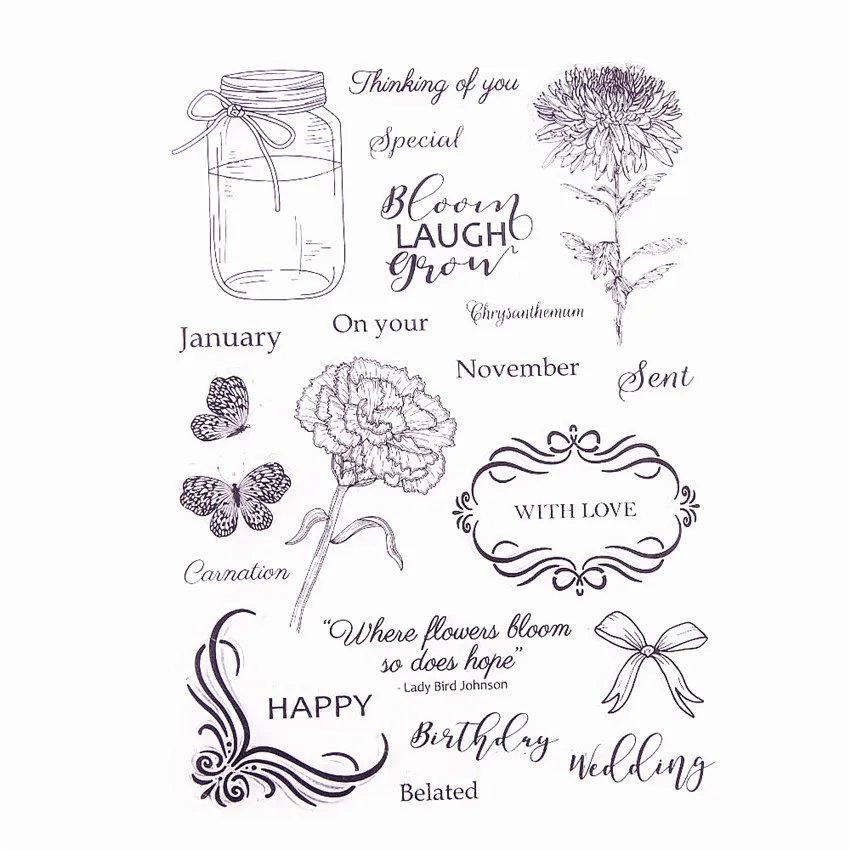 Thinking of you
Special
Bloom
LAUGH
grow
Chrysanthemum
January
On your
November
Sent
WITH LOVE
Carnation
“Where flowers bloom
so does hope”
- Lady Bird Johnson
HAPPY
Birthday
Wedding
Belated